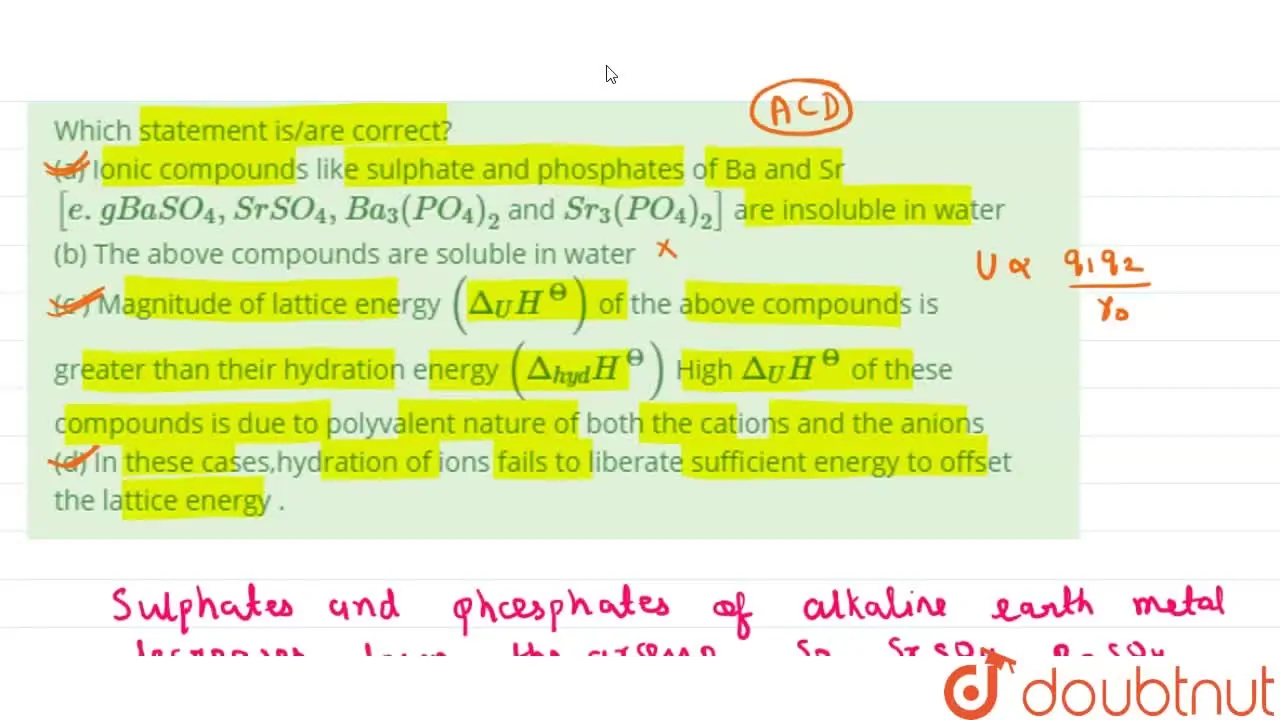 ACD
Which statement is/are correct?
(a) Ionic compounds like sulphate and phosphates of Ba and Sr
[e. gBaSO₄, SrSO₄, Ba₃(PO₄)₂ and Sr₃(PO₄)₂] are insoluble in water
(b) The above compounds are soluble in water ×
U ∝ q₁q₂ / r₀
(c) Magnitude of lattice energy (Δ_U H^Θ) of the above compounds is
greater than their hydration energy (Δ_hyd H^Θ) High Δ_U H^Θ of these
compounds is due to polyvalent nature of both the cations and the anions
(d) In these cases,hydration of ions fails to liberate sufficient energy to offset
the lattice energy .
Sulphates and phosphates of alkaline earth metal
doubtnut